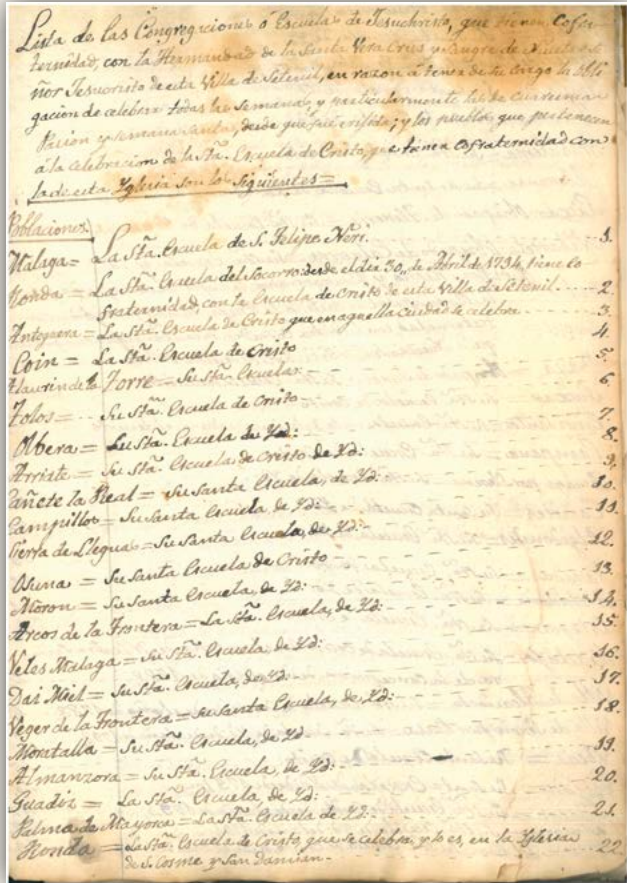 Lista de las Congregaciones ó Escuelas de Jesuchristo, que tienen Cofra
ternidad, con la Hermandad de la Santa Vera Cruz y Sangre de Nuestro Se
ñor Jesucristo de esta Villa de Setenil, en razon á tener de su Cargo la obli
gacion de celebrar todas las Semanas, y particularmente las de Cuaresma
Pasion y semana santa, desde que fué erijida; y los pueblos que pertenecen
á la celebracion de la Sta. Escuela de Cristo, que tienen Cofraternidad con
la de esta Yglesia son los siguientes=
Poblaciones
Malaga= La Sta. Escuela de S. Felipe Neri. 1.
Ronda= La Sta. Escuela del Socorro: desde el dia 30,, de Abril de 1734, tiene co
fraternidad, con la Escuela de Cristo de esta Villa de Setenil 2.
Antequera= La Sta. Escuela de Cristo que en aquella ciudad se celebra 3.
Coin= La Sta. Escuela de Cristo 4.
Alaurin de la Torre= Su Sta. Escuela: 5.
Tolos= Su Sta. Escuela de Cristo 6.
Olbera= Su Sta. Escuela de Yd: 7.
Arriate= Su Sta. Escuela de Cristo de Yd: 8.
Cañete la Real= Su santa Escuela, de Yd: 9.
Campillos= Su santa Escuela, de Yd: 10.
Sierra de Lleguas= Su santa Escuela, de Yd: 11.
Osuna= Su Santa Escuela de Cristo 12.
Moron= Su santa Escuela, de Yd: 13.
Arcos de la Frontera= La Sta. Escuela, de Yd: 14.
Veles Malaga= Su Sta. Escuela, de Yd: 15.
Dai Miel= Su Sta. Escuela, de Yd: 16.
Veger de la Frontera= Su santa Escuela, de Yd: 17.
Moratalla= Su Sta. Escuela, de Yd: 18.
Almanzora= Su Sta. Escuela, de Yd: 19.
Guadiz= La Sta. Escuela, de Yd: 20.
Palma de Mayorca= La Sta. Escuela de Yd: 21.
Ronda= La Sta. Escuela de Cristo, que se celebra, y lo es, en la Yglesia 22.
de S. Cosme y San Damian.